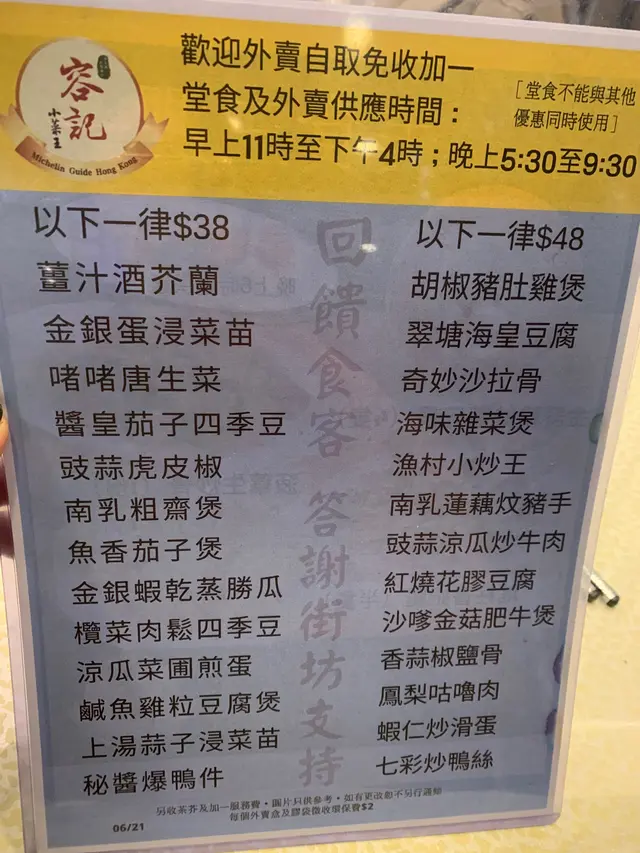 容記
小菜王
Michelin Guide Hong Kong
歡迎外賣自取免收加一
堂食及外賣供應時間：
早上11時至下午4時；晚上5:30至9:30
［堂食不能與其他
優惠同時使用］
以下一律$38
薑汁酒芥蘭
金銀蛋浸菜苗
啫啫唐生菜
醬皇茄子四季豆
豉蒜虎皮椒
南乳粗齋煲
魚香茄子煲
金銀蝦乾蒸勝瓜
欖菜肉鬆四季豆
涼瓜菜圃煎蛋
鹹魚雞粒豆腐煲
上湯蒜子浸菜苗
秘醬爆鴨件
回饋食客 答謝街坊支持
以下一律$48
胡椒豬肚雞煲
翠塘海皇豆腐
奇妙沙拉骨
海味雜菜煲
漁村小炒王
南乳蓮藕炆豬手
豉蒜涼瓜炒牛肉
紅燒花膠豆腐
沙嗲金菇肥牛煲
香蒜椒鹽骨
鳳梨咕嚕肉
蝦仁炒滑蛋
七彩炒鴨絲
另收茶芥及加一服務費・圖片只供參考・如有更改恕不另行通知
每個外賣盒及膠袋徵收環保費$2
06/21